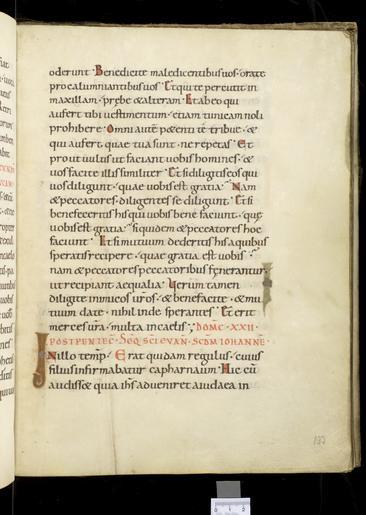 oderunt. Benedicite maledicentibus vos. orate
pro calumniantibus vos. Et qui te percutit in
maxillam. prębe & alteram. Et ab eo qui
aufert tibi vestimentum. etiam tunicam noli
prohibere. Omni autē petenti te tribue. &
qui aufert quae tua sunt. ne repetas. Et
prout vultis ut faciant vobis homines. &
vos facite illis similiter. Et si diligitis eos qui
vos diligunt. quae vobis est gratia. Nam
& peccatores diligentes se diligunt. Et si
benefeceritis his qui vobis bene faciunt. quę
vobis est gratia. siquidem & peccatores hoc
faciunt. Et si mutuum dederitis his a quibus
speratis recipere. quae gratia est vobis.
nam & peccatores peccatoribus fęnerantur.
ut recipiant aequalia. Verum tamen
diligite inimicos vr̄os. & benefacite. & mu
tuum date. nihil inde sperantes. Et erit
merces vr̄a. multa in caelis; DOMC. XXII.
POST PENTEC. SEQ SCI EVAN. SCDM IOHANNĒ.
In illo temp̄. Erat quidam regulus. cuius
filius infirmabatur capharnaum. Hic cū
audisset quia ihs̄ adveniret a iudaea in
133